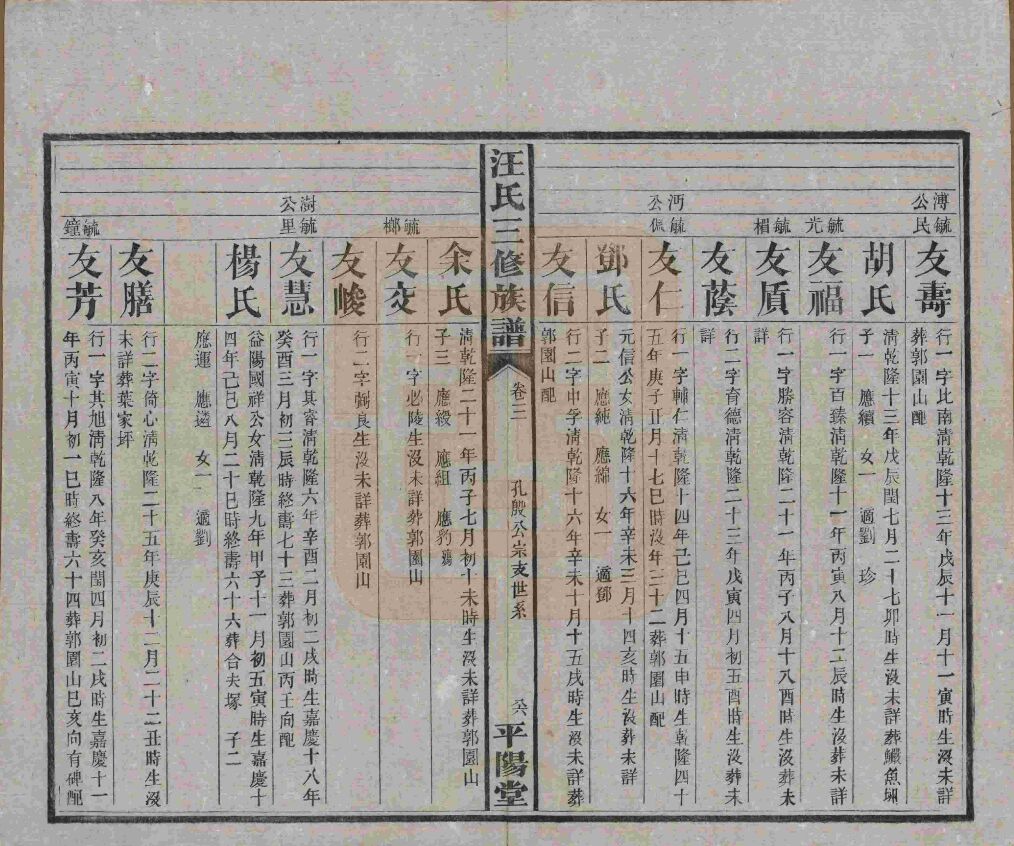 溥公
毓民
友壽
行一字比南淸乾隆十三年戊辰十一月十一寅時生沒未詳
葬郭園山配
胡氏
淸乾隆十三年戊辰閏七月二十七卯時生沒未詳葬鱖魚墈
子一 應纘 女一 適劉 珍
毓光
友福
行一字百臻淸乾隆十一年丙寅八月十二辰時生沒葬未詳
毓楣
友盾
行一字勝容淸乾隆二十一年丙子八月十八酉時生沒葬未
詳
友蔭
行二字育德淸乾隆二十三年戊寅四月初五酉時生沒葬未
詳
沔公
毓僬
友仁
行一字輔仁淸乾隆十四年己巳四月十五申時生乾隆四十
五年庚子正月十七巳時沒年三十二葬郭園山配
鄧氏
元信公女淸乾隆十六年辛未三月十四亥時生沒葬未詳
子二 應純 應綿 女一 適鄧
友信
行二字中孚淸乾隆十六年辛未十月十五戌時生沒未詳葬
郭園山配
汪氏三修族譜
卷三
孔殷公宗支世系
平陽堂
余氏
淸乾隆二十一年丙子七月初十未時生沒未詳葬郭園山
子三 應縀 應組 應豹 殤
毓榔
友交
行一字必陵生沒未詳葬郭園山
友峻
行二字弼良生沒未詳葬郭園山
澍公
毓里
友慧
行一字其睿淸乾隆六年辛酉二月初二戌時生嘉慶十八年
癸酉三月初三辰時終壽七十三葬郭園山丙壬向配
楊氏
益陽國祥公女淸乾隆九年甲子十一月初五寅時生嘉慶十
四年己巳八月二十巳時終壽六十六葬合夫塚 子二
應運 應遴 女一 適劉
友膳
行二字倚心淸乾隆二十五年庚辰十二月二十二丑時生沒
未詳葬葉家坪
毓鐘
友芳
行一字其旭淸乾隆八年癸亥閏四月初二戌時生嘉慶十一
年丙寅十月初一巳時終壽六十四葬郭園山巳亥向有碑配